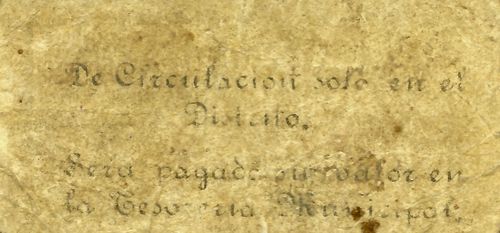 De Circulacion solo en el
Distrito.
Sera pagado su valor en
la Tesoreria Municipal.